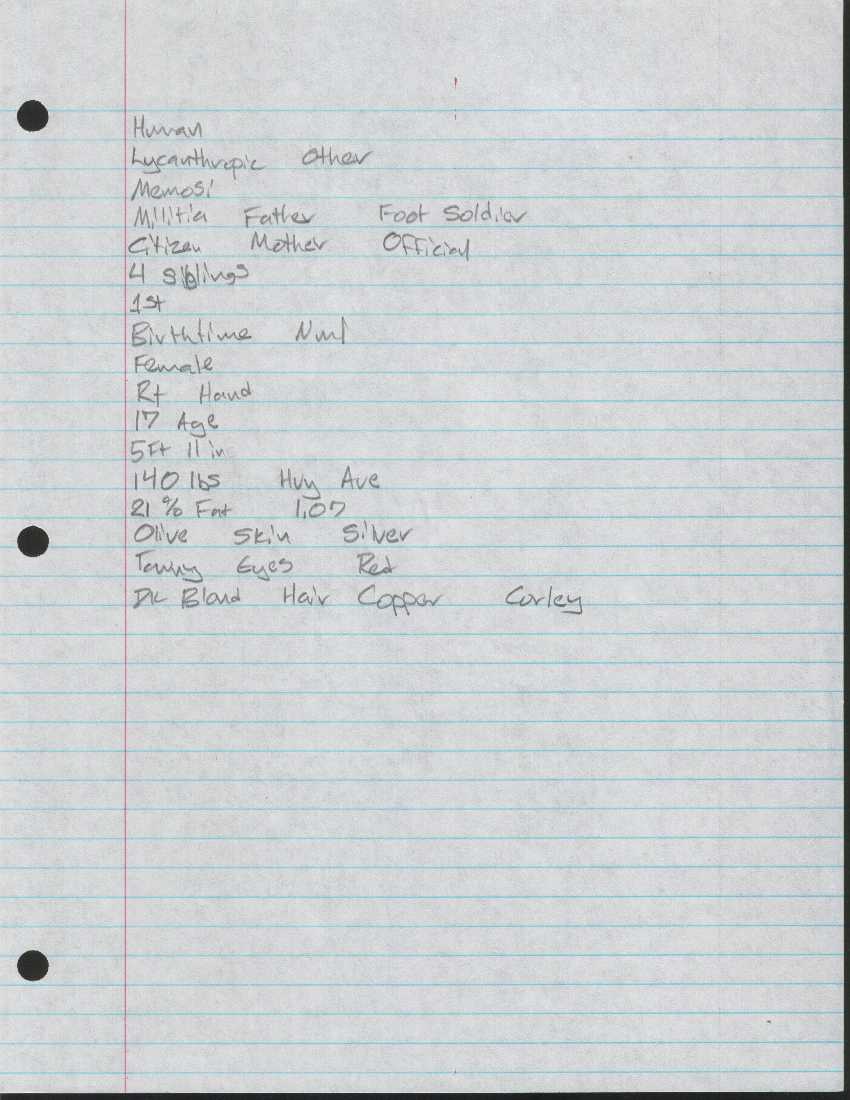 Human
Lycanthropic Other
Memosi
Millitia Father Foot Soldier
Citizen Mother Official
4 Siblings
1st
Birthtime Nml
Female
Rt Hand
17 Age
5Ft 11 in
140 lbs Hvy Ave
21 % Fat 1,07
Olive Skin Silver
Tawny Eyes Red
Dk Blond Hair Copper Curley